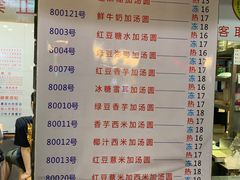 冻 16
800121号 热 13
鲜牛奶加汤圆 冻 16
8003号 热 15
红豆糖水加汤圆 冻 18
8004号 热 15
冻 18
8007号 热 15
红豆香芋加汤圆 冻 18
8008号 热 14
冰糖雪耳加汤圆 冻 17
80010号 热 15
绿豆香芋加汤圆 冻 18
80011号 热 14
香芋西米加汤圆 冻 17
80012号 热 14
椰汁西米加汤圆 冻 17
80013号 热 15
红豆薏米加汤圆 冻 18
80020号 热 15
红豆薏米加西米加汤圆 冻 18